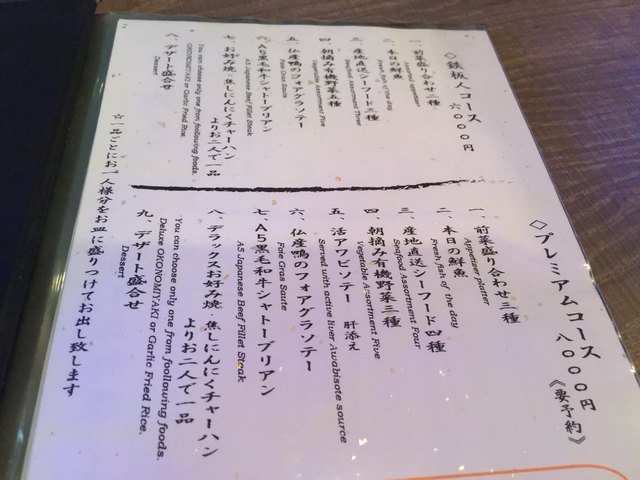 ◇鉄板人コース 六〇〇〇円
一、前菜盛り合わせ二種
Assorted appetizer
二、本日の鮮魚
Fresh fish of the day
三、産地直送シーフード三種
Seafood Assortment Three
四、朝摘み有機野菜五種
Vegetable Assortment Five
五、仏産鴨のフォアグラソテー
Foie Gras Saute
六、A5黒毛和牛シャトーブリアン
A5 Japanese Beef Fillet Steak
七、お好み焼 焦しにんにくチャーハン
よりお二人で一品
You can choose only one from foollowing foods.
OKONOMIYAKI or Garlic Fried Rice.
八、デザート盛合せ
Dessert
◇プレミアムコース 八〇〇〇円
《要予約》
一、前菜盛り合わせ三種
Appetizer platter
二、本日の鮮魚
Fresh fish of the day
三、産地直送シーフード四種
Seafood Assortment Four
四、朝摘み有機野菜三種
Vegetable Assortment Five
五、活アワビソテー 肝添え
Served with active liver Awabisote source
六、仏産鴨のフォアグラソテー
Foie Gras Saute
七、A5黒毛和牛シャトーブリアン
A5 Japanese Beef Fillet Steak
八、デラックスお好み焼 焦しにんにくチャーハン
よりお二人で一品
You can choose only one from foollowing foods.
Deluxe OKONOMIYAKI or Garlic Fried Rice.
九、デザート盛合せ
Dessert
☆一品ごとにお一人様分をお皿に盛りつけてお出し致します